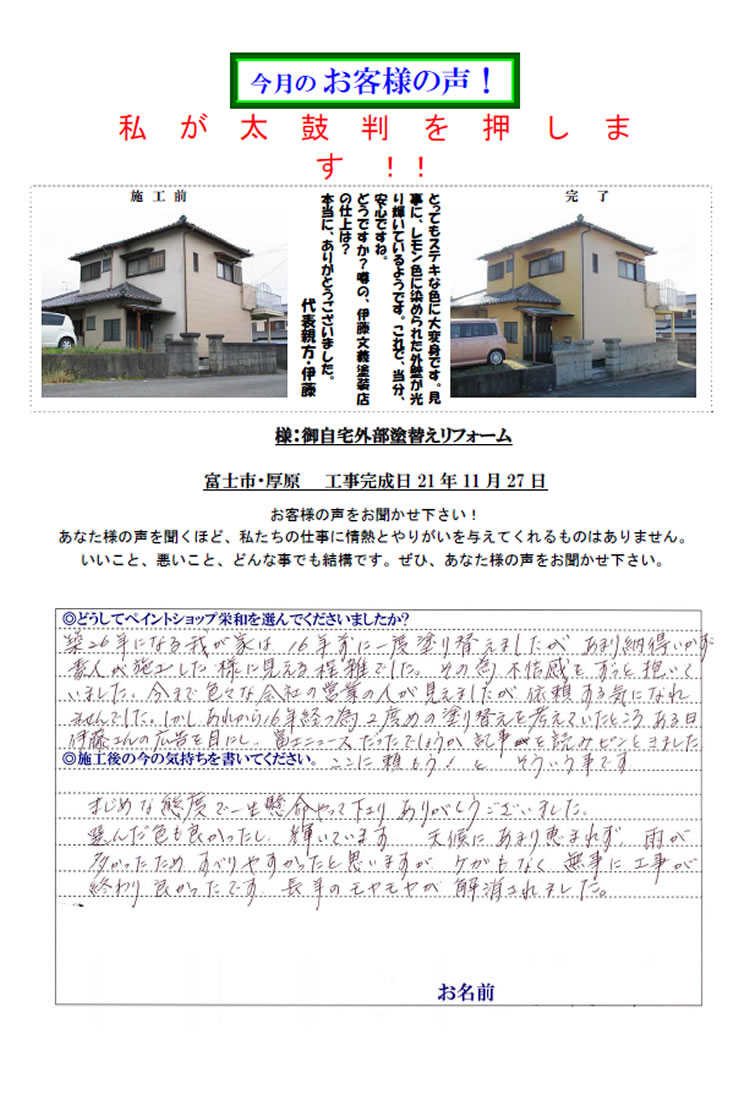 今月の お客様の声！
私が太鼓判を押しま
す！！
施工前
とってもステキな色に大変身です。見
事に、レモン色に染められた外壁が光
り輝いているようです。これで、当分、
安心ですね。
どうですか？噂の、伊藤文義塗装店
の仕上は？
本当に、ありがとうございました。
代表親方・伊藤
完了
様：御自宅外部塗替えリフォーム
富士市・厚原 工事完成日21年11月27日
お客様の声をお聞かせ下さい！
あなた様の声を聞くほど、私たちの仕事に情熱とやりがいを与えてくれるものはありません。
いいこと、悪いこと、どんな事でも結構です。ぜひ、あなた様の声をお聞かせ下さい。
◎どうしてペイントショップ栄和を選んでくださいましたか？
築26年になる我が家は、16年前に一度塗り替えましたが、あまり納得いかず
素人が施工した様に見える程 雑でした。その為 不信感を ずっと抱いて
いました。今まで色々な会社の営業の人が見えましたが 依頼する気になれ
ませんでした。しかしあれから16年経つ為 2度めの塗り替えを考えていたところ、ある日
伊藤さんの広告を目にし、富士ニュースだったでしょうか 記事を読みピンときました
◎施工後の今の気持ちを書いてください。 ここに頼もう！と そういう事です
まじめな態度で一生懸命やって下さり ありがとうございました。
選んだ色も良かったし、輝いています 天候に あまり恵まれず、雨が
多かったため すべりやすかったと思いますが、ケガもなく 無事に工事が
終わり 良かったです 長年のモヤモヤが 解消されました。
お名前